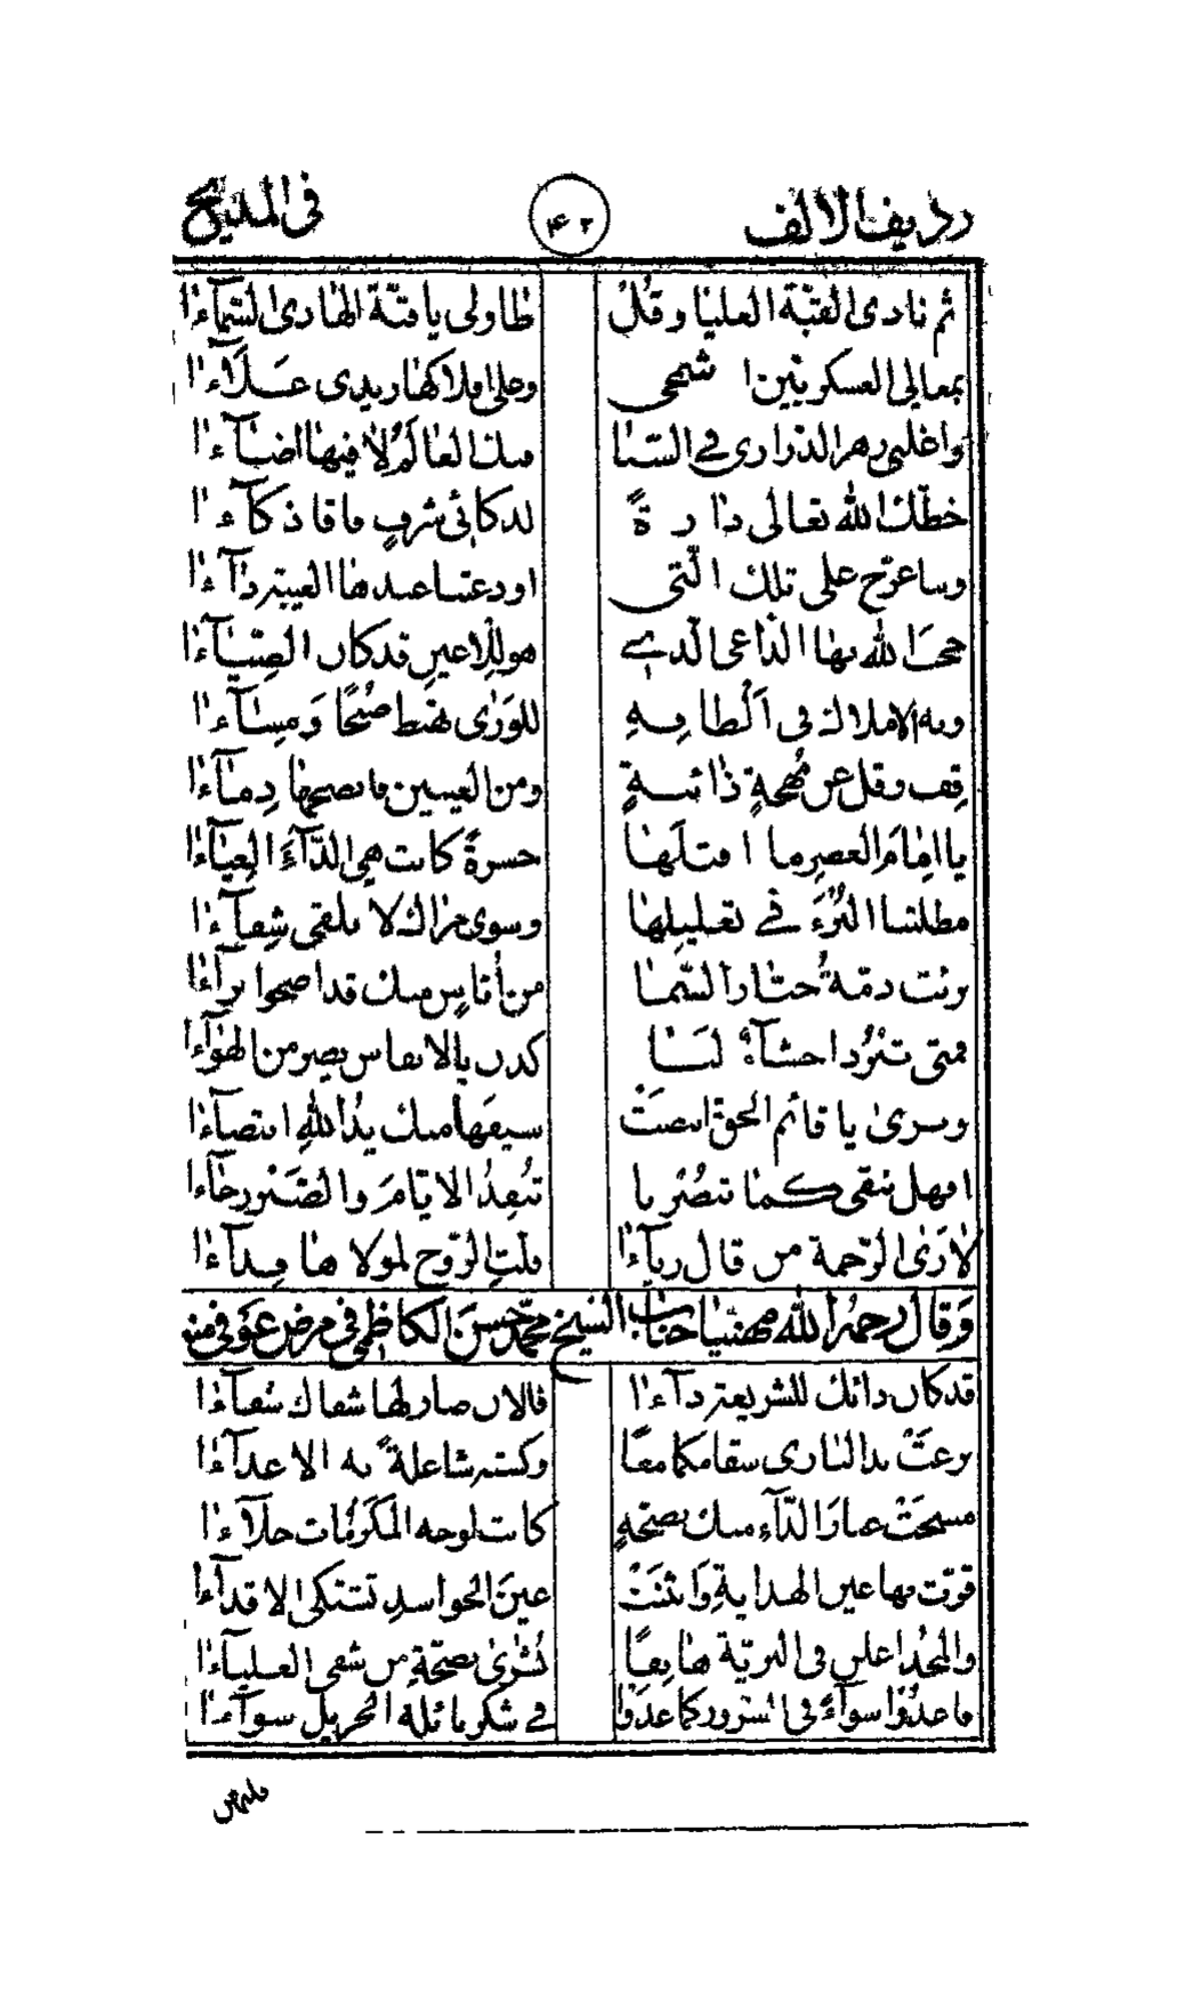 رديف الالف ٤٢ في المديح
ثم نادى القبّة العليا وقُل طاولى يا قبّة الهادى السّمآءا
بمعالى العسكريّين اشمخى وعلى افلاكها زيدى عَلَآءا
واغلبى زهر الدّرارى في السّنا فبك العالم لا فيها اضآءا
خطّك الله تعالى دارةً لذكائى شرفٍ فاقا ذكآءا
وساعرّج على تلك الّتى اودعتنا عندها الغيبة دآءا
حجبَ الله بها الدّاعى الّذي هو للاعينِ قد كان الضّيآءا
وبه الاملاك فى اَلْطافِهِ للوَرٰى تهبط صُبْحًا وَمسآءا
قِف وقل عن مُهجةٍ ذائبةٍ ومن العينين فانضحها دِمآءا
يا اِمامَ العصرِ ما اقتلَها حسرةً كانت هي الدّآءَ العيآءا
مطلتنا البُرْءَ في تعليلها وسوى مراك لا نلقى شِفآءا
برئت ذمّةُ جبّار السّما من اُناسٍ منك قد اصبحوا برآءا
فمتى تبرُد احشآءٌ لنا كدن بالانفاس يضرمن الهوآءا
ونرى يا قائم الحق انتضَتْ سيفَها منك يدُ اللهِ انتضآءا
افهل نبقى كما تبصُر نا نُنفِذُ الايّامَ والصّبر رجآءا
لا رَاى الرّحمة من قال ريآءا قلّتِ الرّوح لمولاها فدآءا
وَقال رحمهُ الله مهنّيا جناب الشيخ محمّد حسن الكاظمى فى مرض عوفى منه
قد كان دائك للشريعة دآءا فالان صار لها شفاك شفآءا
نزعَتْ يد البارى سقامكما معًا وكسته شاعلةً به الاعدآءا
مسحَتْ غبارَ الدّآءِ منك بصحّةٍ كانت لوجه المكرُمات جلآءا
قرّت بها عين الهدايةِ وَانثنَتْ عينَ الحواسدِ تشتكى الاقذآءا
والمجُد اعلن فى البريّة هاتِفًا بُشْرىٰ بصحّةِ من شفى العليآءا
فاغدُوا سوآءً فى السّرور كما غدَوا في شكر نائله الجزيل سوآءا